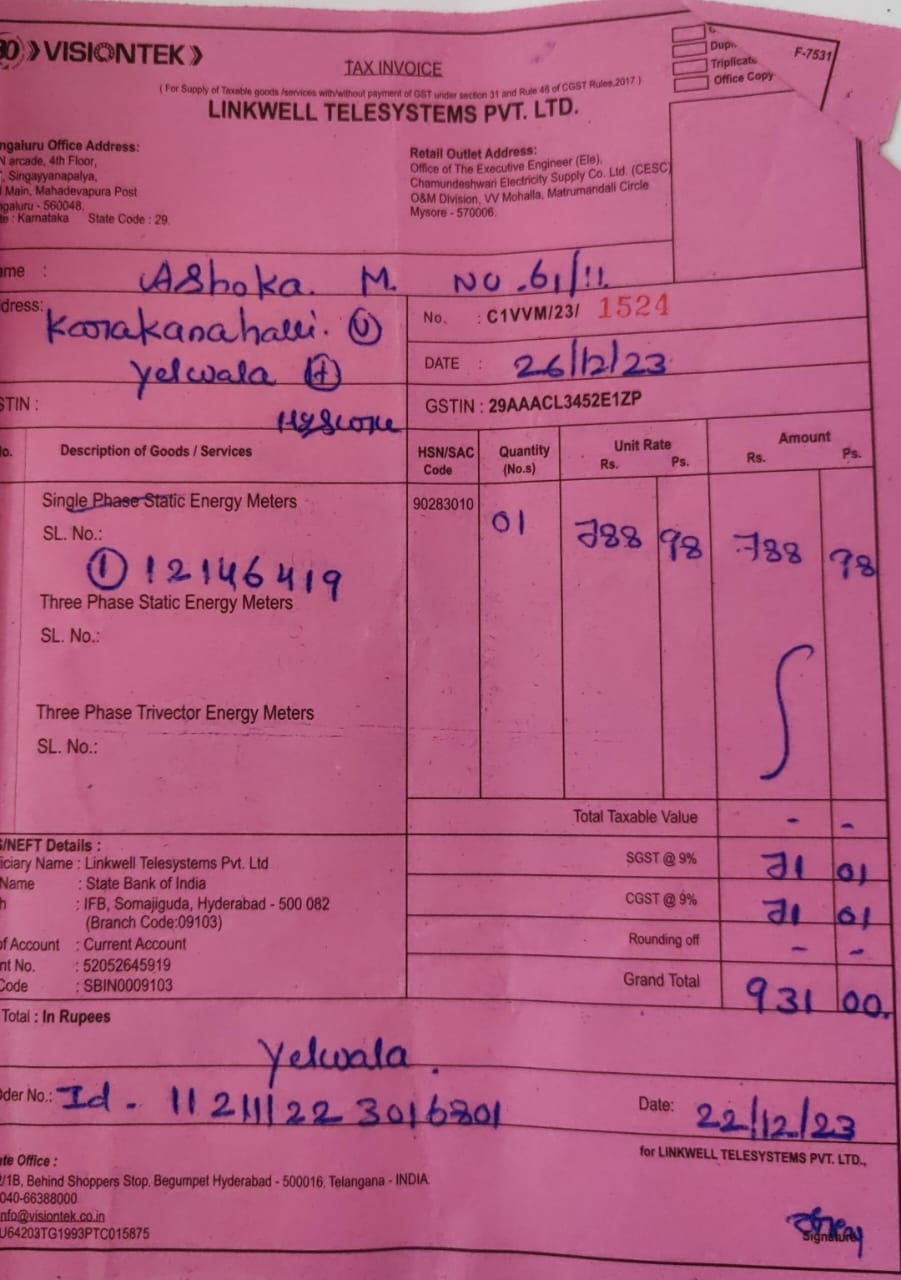 VISIONTEK
TAX INVOICE
F-7531
Triplicate
Office Copy
( For Supply of Taxable goods /services with/without payment of GST under section 31 and Rule 46 of CGST Rules,2017 )
LINKWELL TELESYSTEMS PVT. LTD.
ngaluru Office Address:
N arcade, 4th Floor,
, Singayyanapalya,
Main, Mahadevapura Post
ngaluru - 560048,
: Karnataka State Code : 29
Retail Outlet Address:
Office of The Executive Engineer (Ele),
Chamundeshwari Electricity Supply Co. Ltd. (CESC)
O&M Division, VV Mohalla, Matrumandali Circle
Mysore - 570006.
ame : AShoka. M. NO.61/11.
dress: Koorakanahalli. (V)
yelwala (H)
No. : C1VVM/23/ 1524
DATE : 26/12/23
STIN :
GSTIN : 29AAACL3452E1ZP
o. Description of Goods / Services HSN/SAC Code Quantity (No.s) Unit Rate Rs. Ps. Amount Rs. Ps.
Single Phase Static Energy Meters 90283010 01 788 98 788 98
SL. No.:
① 12146419
Three Phase Static Energy Meters
SL. No.:
Three Phase Trivector Energy Meters
SL. No.:
Total Taxable Value - -
S/NEFT Details :
iciary Name : Linkwell Telesystems Pvt. Ltd
Name : State Bank of India
h : IFB, Somajiguda, Hyderabad - 500 082
(Branch Code:09103)
of Account : Current Account
nt No. : 52052645919
Code : SBIN0009103
SGST @ 9% 71 01
CGST @ 9% 71 01
Rounding off - -
Grand Total 931 00.
Total : In Rupees
Yelwala.
der No.: Id - 11211122 3016801
Date: 22/12/23
for LINKWELL TELESYSTEMS PVT. LTD.,
te Office :
/1B, Behind Shoppers Stop, Begumpet Hyderabad - 500016, Telangana - INDIA.
040-66388000
nfo@visiontek.co.in
U64203TG1993PTC015875
Signature